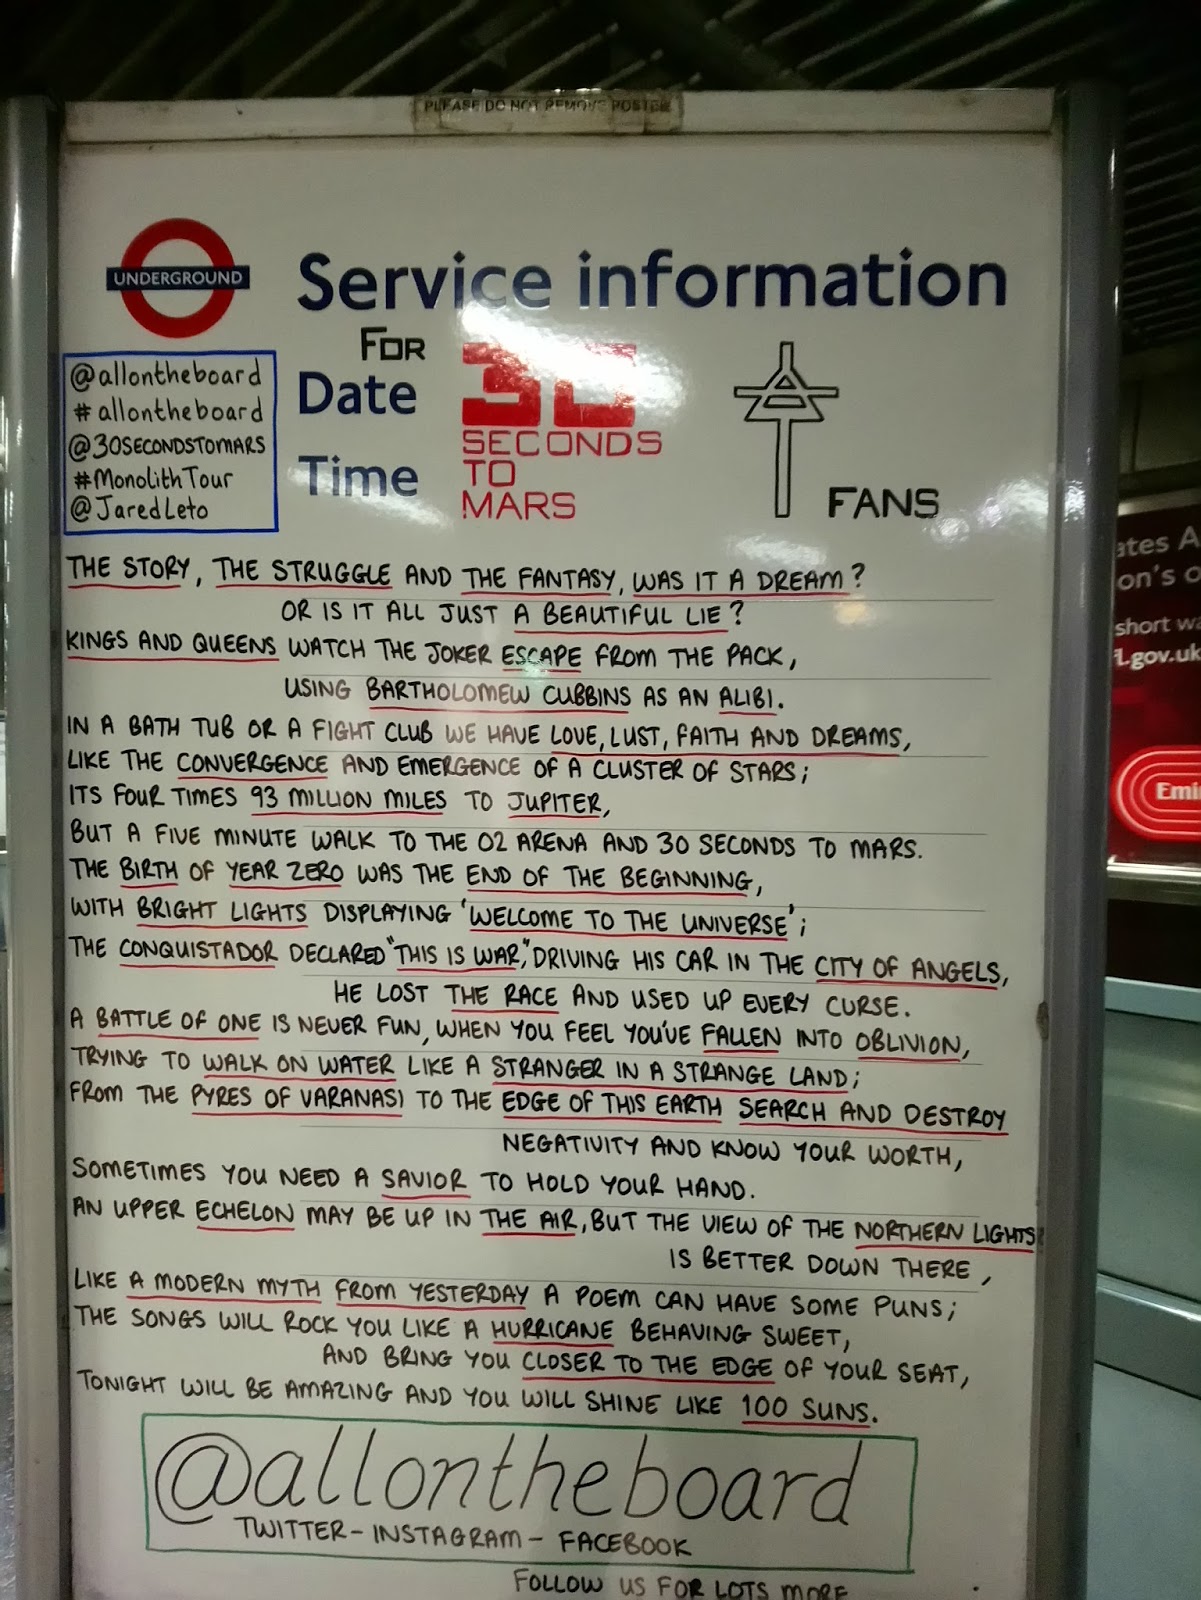 PLEASE DO NOT REMOVE POSTER
UNDERGROUND
Service information
FOR
Date
Time
30
SECONDS
TO
MARS
FANS
@allontheboard
#allontheboard
@30SECONDSTOMARS
#MonolithTour
@JaredLeto
THE STORY, THE STRUGGLE AND THE FANTASY, WAS IT A DREAM?
OR IS IT ALL JUST A BEAUTIFUL LIE?
KINGS AND QUEENS WATCH THE JOKER ESCAPE FROM THE PACK,
USING BARTHOLOMEW CUBBINS AS AN ALIBI.
IN A BATH TUB OR A FIGHT CLUB WE HAVE LOVE, LUST, FAITH AND DREAMS,
LIKE THE CONVERGENCE AND EMERGENCE OF A CLUSTER OF STARS;
ITS FOUR TIMES 93 MILLION MILES TO JUPITER,
BUT A FIVE MINUTE WALK TO THE O2 ARENA AND 30 SECONDS TO MARS.
THE BIRTH OF YEAR ZERO WAS THE END OF THE BEGINNING,
WITH BRIGHT LIGHTS DISPLAYING 'WELCOME TO THE UNIVERSE';
THE CONQUISTADOR DECLARED "THIS IS WAR", DRIVING HIS CAR IN THE CITY OF ANGELS,
HE LOST THE RACE AND USED UP EVERY CURSE.
A BATTLE OF ONE IS NEVER FUN, WHEN YOU FEEL YOU'VE FALLEN INTO OBLIVION,
TRYING TO WALK ON WATER LIKE A STRANGER IN A STRANGE LAND;
FROM THE PYRES OF VARANASI TO THE EDGE OF THIS EARTH SEARCH AND DESTROY
NEGATIVITY AND KNOW YOUR WORTH,
SOMETIMES YOU NEED A SAVIOR TO HOLD YOUR HAND.
AN UPPER ECHELON MAY BE UP IN THE AIR, BUT THE VIEW OF THE NORTHERN LIGHTS
IS BETTER DOWN THERE,
LIKE A MODERN MYTH FROM YESTERDAY A POEM CAN HAVE SOME PUNS;
THE SONGS WILL ROCK YOU LIKE A HURRICANE BEHAVING SWEET,
AND BRING YOU CLOSER TO THE EDGE OF YOUR SEAT,
TONIGHT WILL BE AMAZING AND YOU WILL SHINE LIKE 100 SUNS.
@allontheboard
TWITTER - INSTAGRAM - FACEBOOK
FOLLOW US FOR LOTS MORE
ates A
on's o
short wa
.gov.uk
Emi